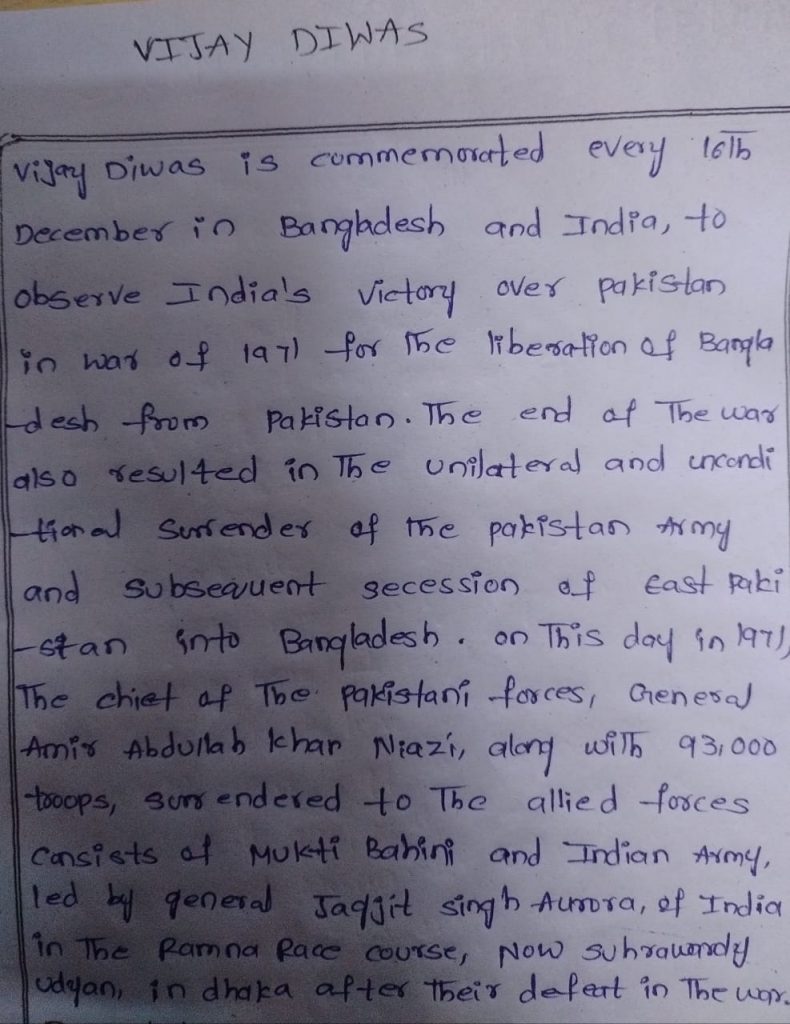 VIJAY DIWAS
Vijay Diwas is commemorated every 16th
December in Bangladesh and India, to
observe India's victory over pakistan
in war of 1971 for the liberation of Bangla
-desh from pakistan. The end of The war
also resulted in The unilateral and uncondi
-tional surrender of the pakistan Army
and subsequent secession of East paki
-stan into Bangladesh. on This day in 1971,
The chief of The pakistani forces, General
Amir Abdullah Khan Niazi, along with 93,000
troops, surrendered to The allied forces
consists of Mukti Bahini and Indian Army,
led by general Jagjit singh Aurora, of India
in The Ramna Race course, Now suhrawardy
udyan, in dhaka after Their defeat in The war.